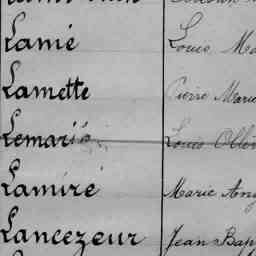 Lamé Louis
Lamette Pierre Marie
Lemarié Louis
Lamiré Marie Ang
Lancezeur Jean Bap